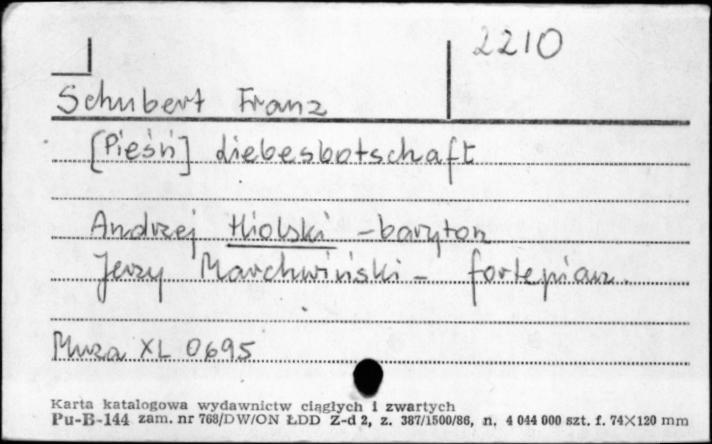 2210
Schubert Franz
[Pieśń] Liebesbotschaft
Andrzej Hiolski - baryton
Jerzy Marchwiński - fortepian.
Muza XL 0695
Karta katalogowa wydawnictw ciągłych i zwartych
Pu-B-144 zam. nr 768/DW/ON ŁDD Z-d 2, z. 387/1500/86, n. 4 044 000 szt. f. 74×120 mm